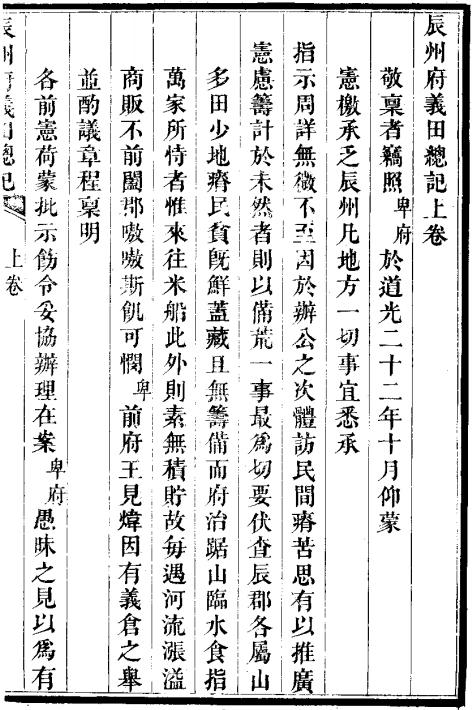 辰州府義田總記上卷
敬稟者竊照卑府於道光二十二年十月仰蒙
憲檄承乏辰州凡地方一切事宜悉承
指示周詳無微不至因於辦公之次體訪民間瘠苦思有以推廣
憲慮籌計於未然者則以備荒一事最為切要伏查辰郡各屬山
多田少地瘠民貧既鮮蓋藏且無籌備而府治踞山臨水食指
萬家所恃者惟來往米船此外則素無積貯故每遇河流漲溢
商販不前闔郡嗷嗷斯飢可憫卑前府王見煒因有義倉之舉
並酌議章程稟明
各前憲荷蒙批示飭令妥協辦理在案卑府愚昧之見以為有
辰州府義田總記
上卷